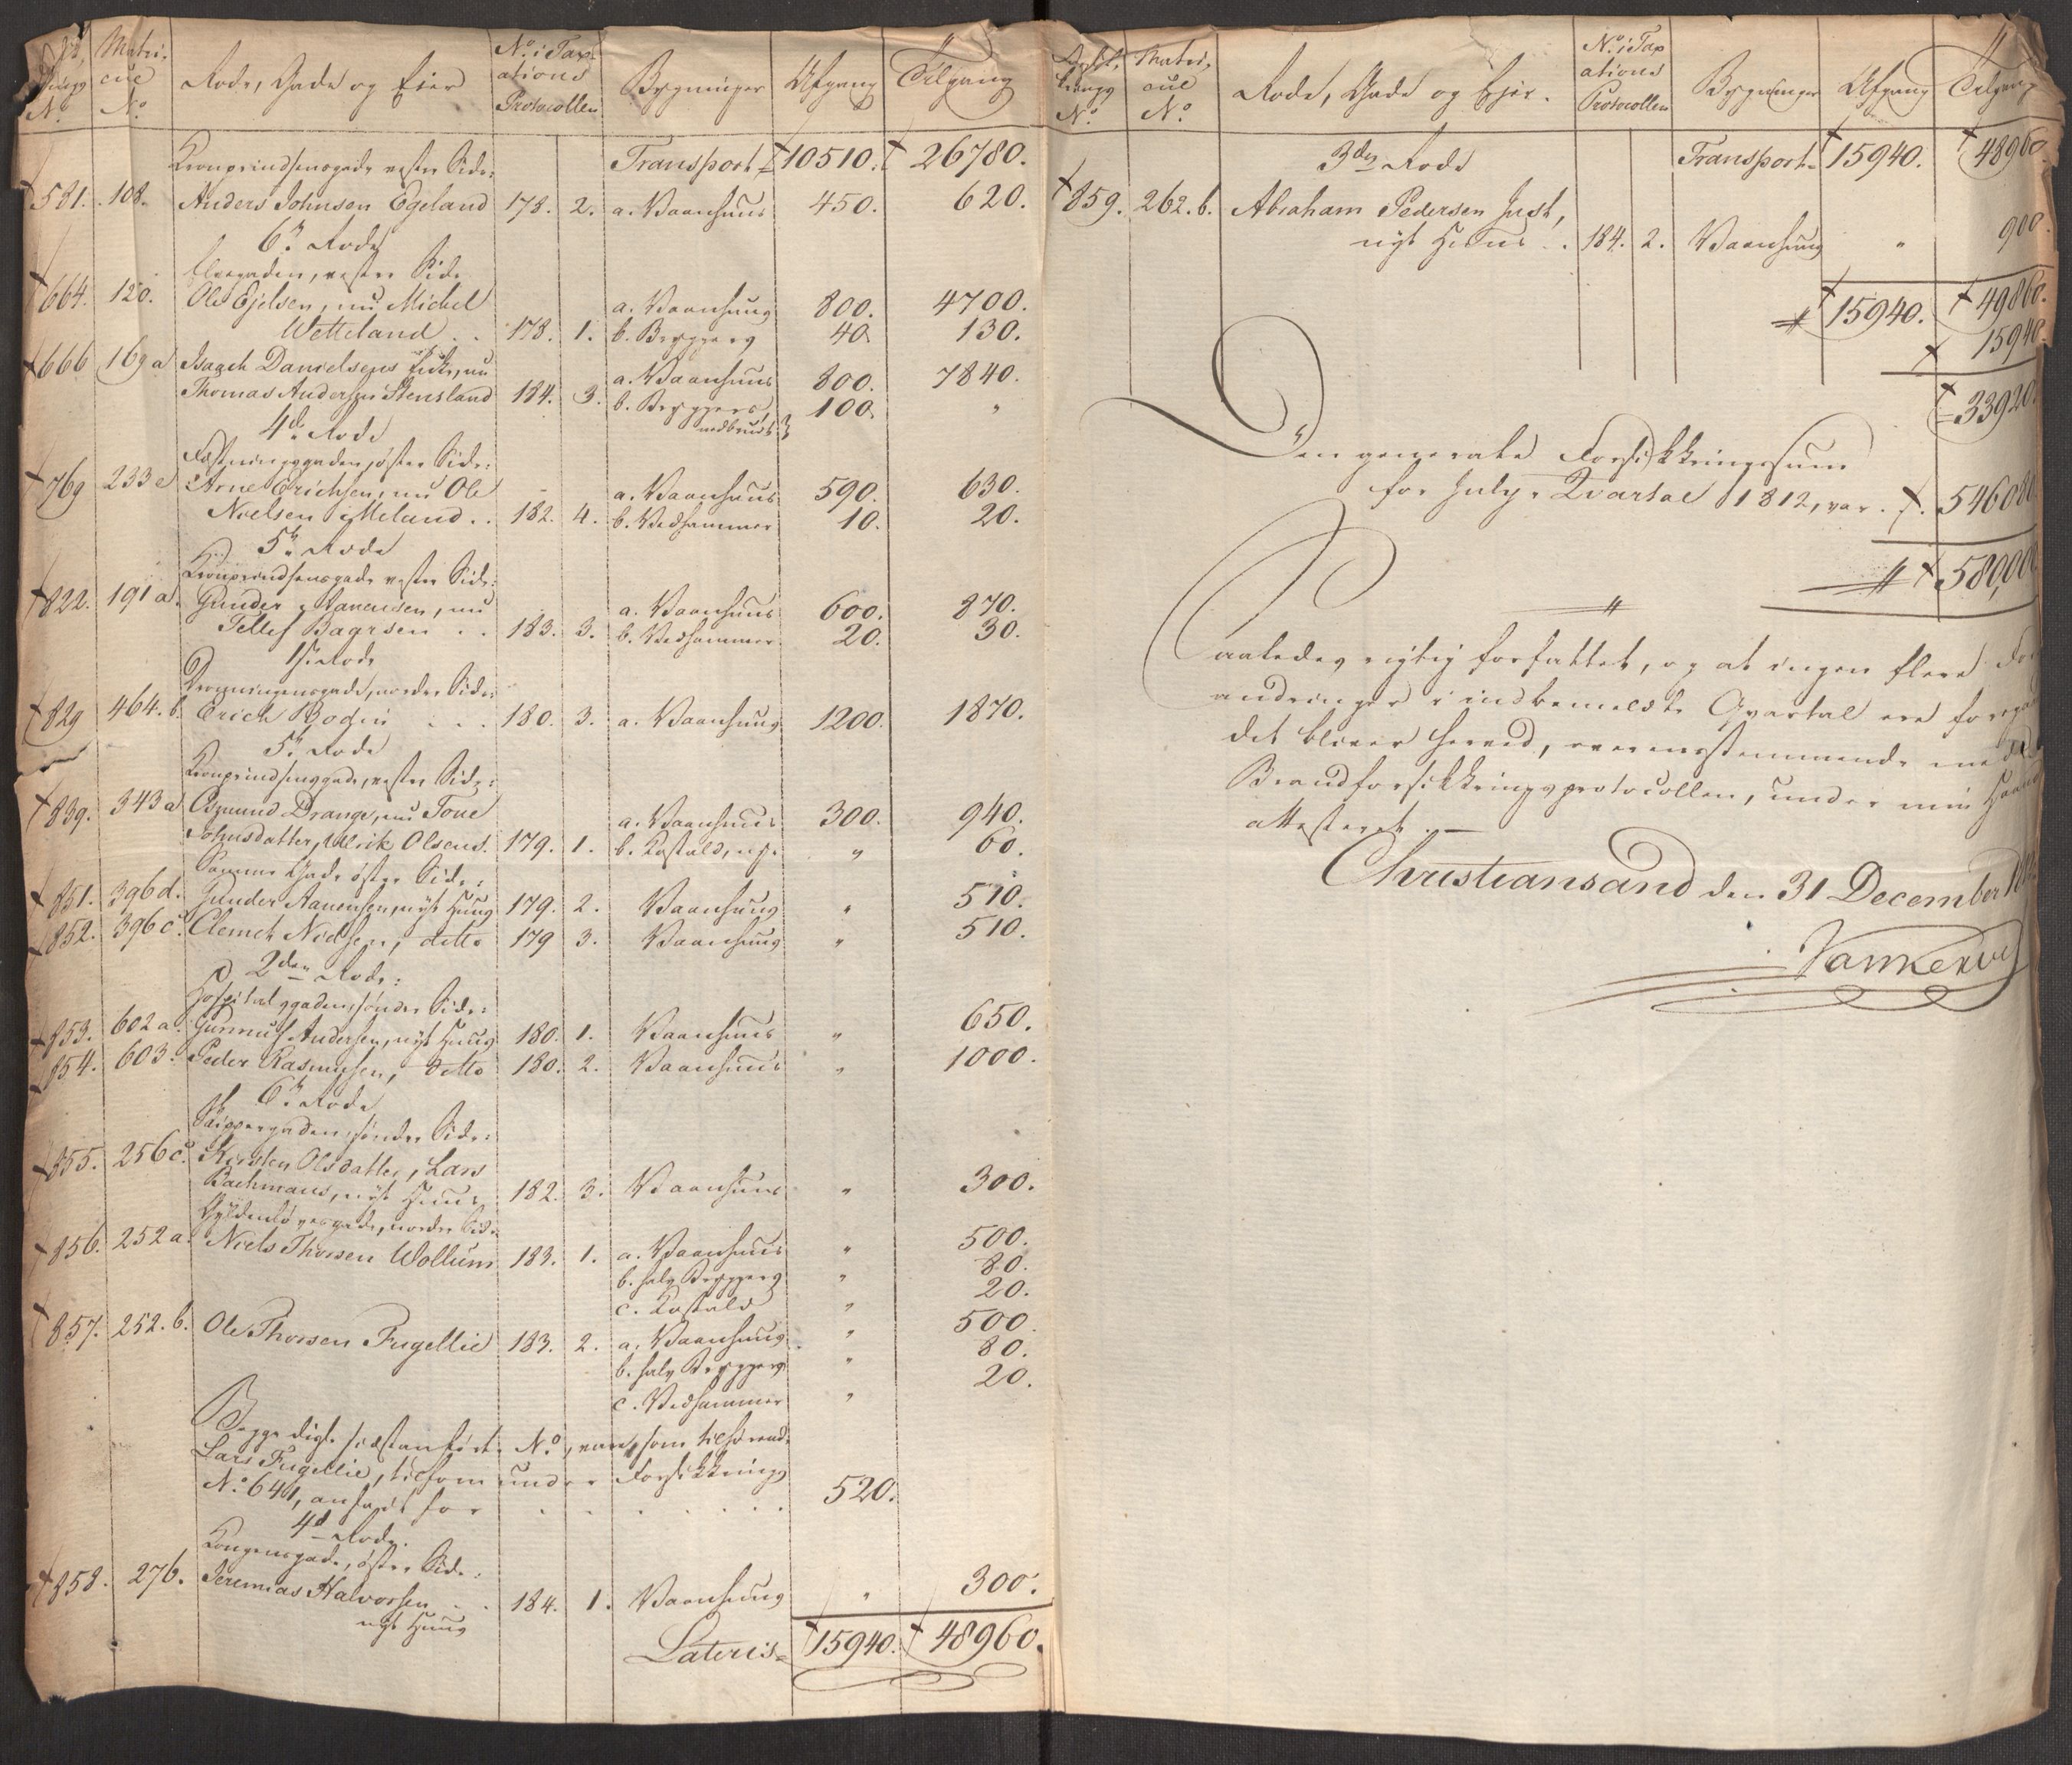 Matri-
cul
No
Rode, Gade og Eier
No i Tax-
ations
Protocollen
Bygninger
Afgang
Tilgang
Transport 10510. 26780.
Kronprindsensgade vester Side:
581. 108. Anders Johnsen Egeland 178. 2. a. Vaanhuus 450. 620.
6te Rode
vester Side
664. 120. Ole Ejelsen, nu Michel a. Vaanhuus 800. 4700.
Wetteland . . 178. 1. b. Bryggers 40. 130.
666 169 a Isaach Danielsens Enke, nu a. Vaanhuus 800. 7840.
Thomas Andersen Stensland 184. 3. b. Bryggers, 100. "
nedbrudt
4de Rode
Fæstningsgaden, øster Side:
769 233 e Arne Erichsen, nu Ole a. Vaanhuus 590. 630.
Nielsen Meland . . 182. 4. b. Vedkammer 10. 20.
5te Rode
Kronprindsensgade vester Side:
822. 191 a. Gunder Aanensen, nu a. Vaanhuus 600. 870.
Tellef Bagersen . . 183. 3. b. Vedkammer 20. 30.
1ste Rode
Dronningensgade, nordre Side:
829 464. b. Erich Bodin . . . 180. 3. a. Vaanhuus 1200. 1870.
5te Rode
Kronprindsensgade, vester Side:
839. 343 a Osmund Drange, nu Tone a. Vaanhuus 300. 940.
Johnsdatter, Ulrik Olsens. 179. 1. b. Kostald, ny. " 60.
Samme Gade øster Side:
851. 396 d. Gunder Aanensen, nyt Huus 179. 2. Vaanhuus " 510.
852. 396 c. Clemet Nielsen, ditto 179 3. Vaanhuus " 510.
2den Rode:
Hospitalsgaden, søndre Side:
853. 602 a. Gunnuf Andersen, nyt Huus 180. 1. Vaanhuus " 650.
854. 603. Peder Rasmusen, ditto 180. 2. Vaanhuus " 1000.
6te Rode
Skippergaden, søndre Side:
855. 256 c. Kirsten Olsdatter, Lars
Bachmans, nyt Huus 182. 3. Vaanhuus " 300.
Gyldenløvesgade, nordre Side
856. 252 a. Niels Thorsen Wollum 183. 1. a. Vaanhuus " 500.
b. halv Bryggers " 80.
c. Kostald " 20.
857. 252. b. Ole Thorsen Fugellie 183. 2. a. Vaanhuus " 500.
b. halv Bryggers " 80.
c. Vedkammer " 20.
Begge disse sidstanførte No, vare, som tilhørende
Lars Fugellie, tilforn under Forsikkrings
No 641, anført for . . . . . . 520.
4de Rode.
Kongensgade, øster Side:
858. 276. Jeremias Halvorsen . . 184. 1. Vaanhuus " 300.
nyt Huus
Lateris 15940. 48960.
Forsik-
krings
No
Matri-
cul
No
Rode, Gade og Ejer.
No i Tax
ations
Protocollen
Bygninger
Afgang
Tilgang
3die Rode Transport 15940. 48960
859. 262. b. Abraham Pedersen Just,
nyt Huus . . 184. 2. Vaanhuus " 900.
15940. 49860.
15940
33920.
Den generale Forsikkringssum
for July Qvartal 1812, var . . 546080
580,000
Saaledes rigtig forfattet, og at ingen flere For-
andringer i indbemeldte Qvartal ere foregaaet
det bliver herved, overensstemmende med
Brandforsikkringsprotocollen, under min Haand
attesteret. —
Christiansand den 31 December 1812